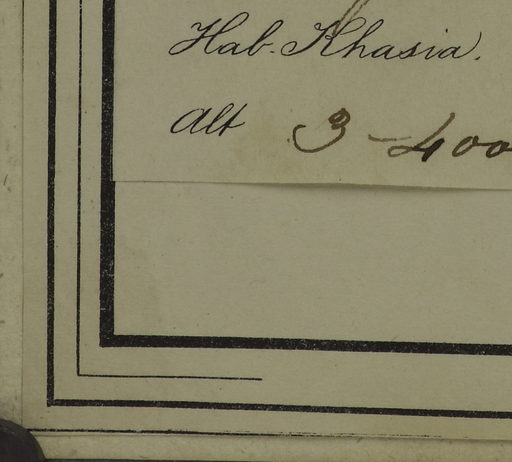 Hab. Khasia.
Alt 3-400